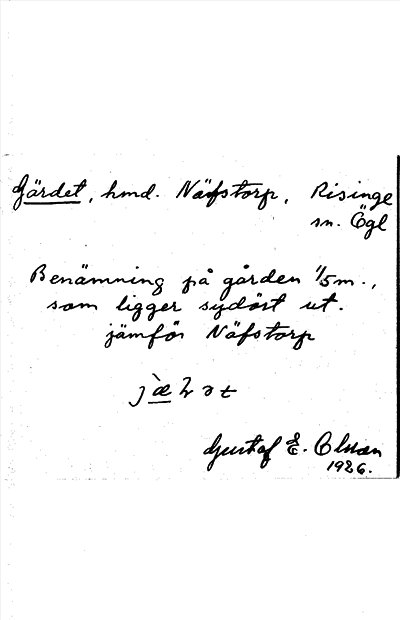 Gärdet, hmd. Näfstorp, Risinge
sn. Ögl
Benämning på gården 1/5 m.,
som ligger sydöst ut.
jämför Näfstorp
Gustaf E. Olsson
1926.